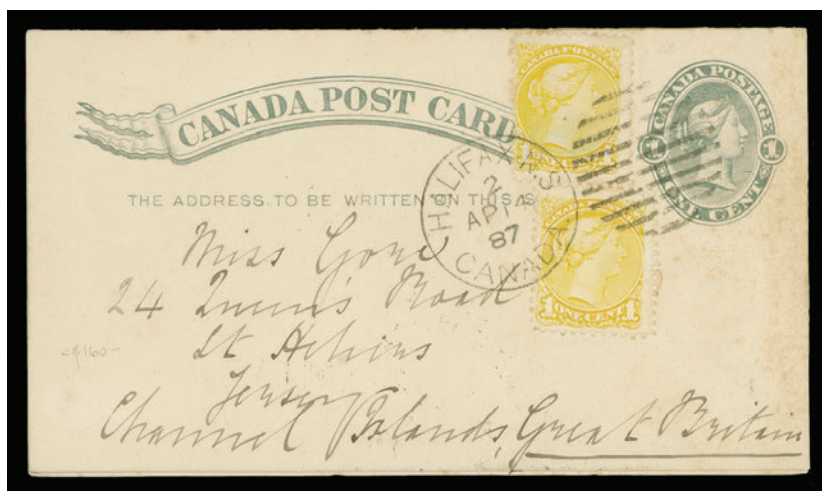 CANADA POST CARD
CANADA POSTAGE
ONE CENT
1 1
CANADA POSTAGE
1 ONE CENT 1
THE ADDRESS TO BE WRITTEN ON THIS
HALIFAX N.S.
2
AP 14
87
CANADA
CANADA POSTAGE
1 ONE CENT 1
Miss Gore
24 Queen's Road
St Heliers
Jersey
Channel Islands, Great Britain